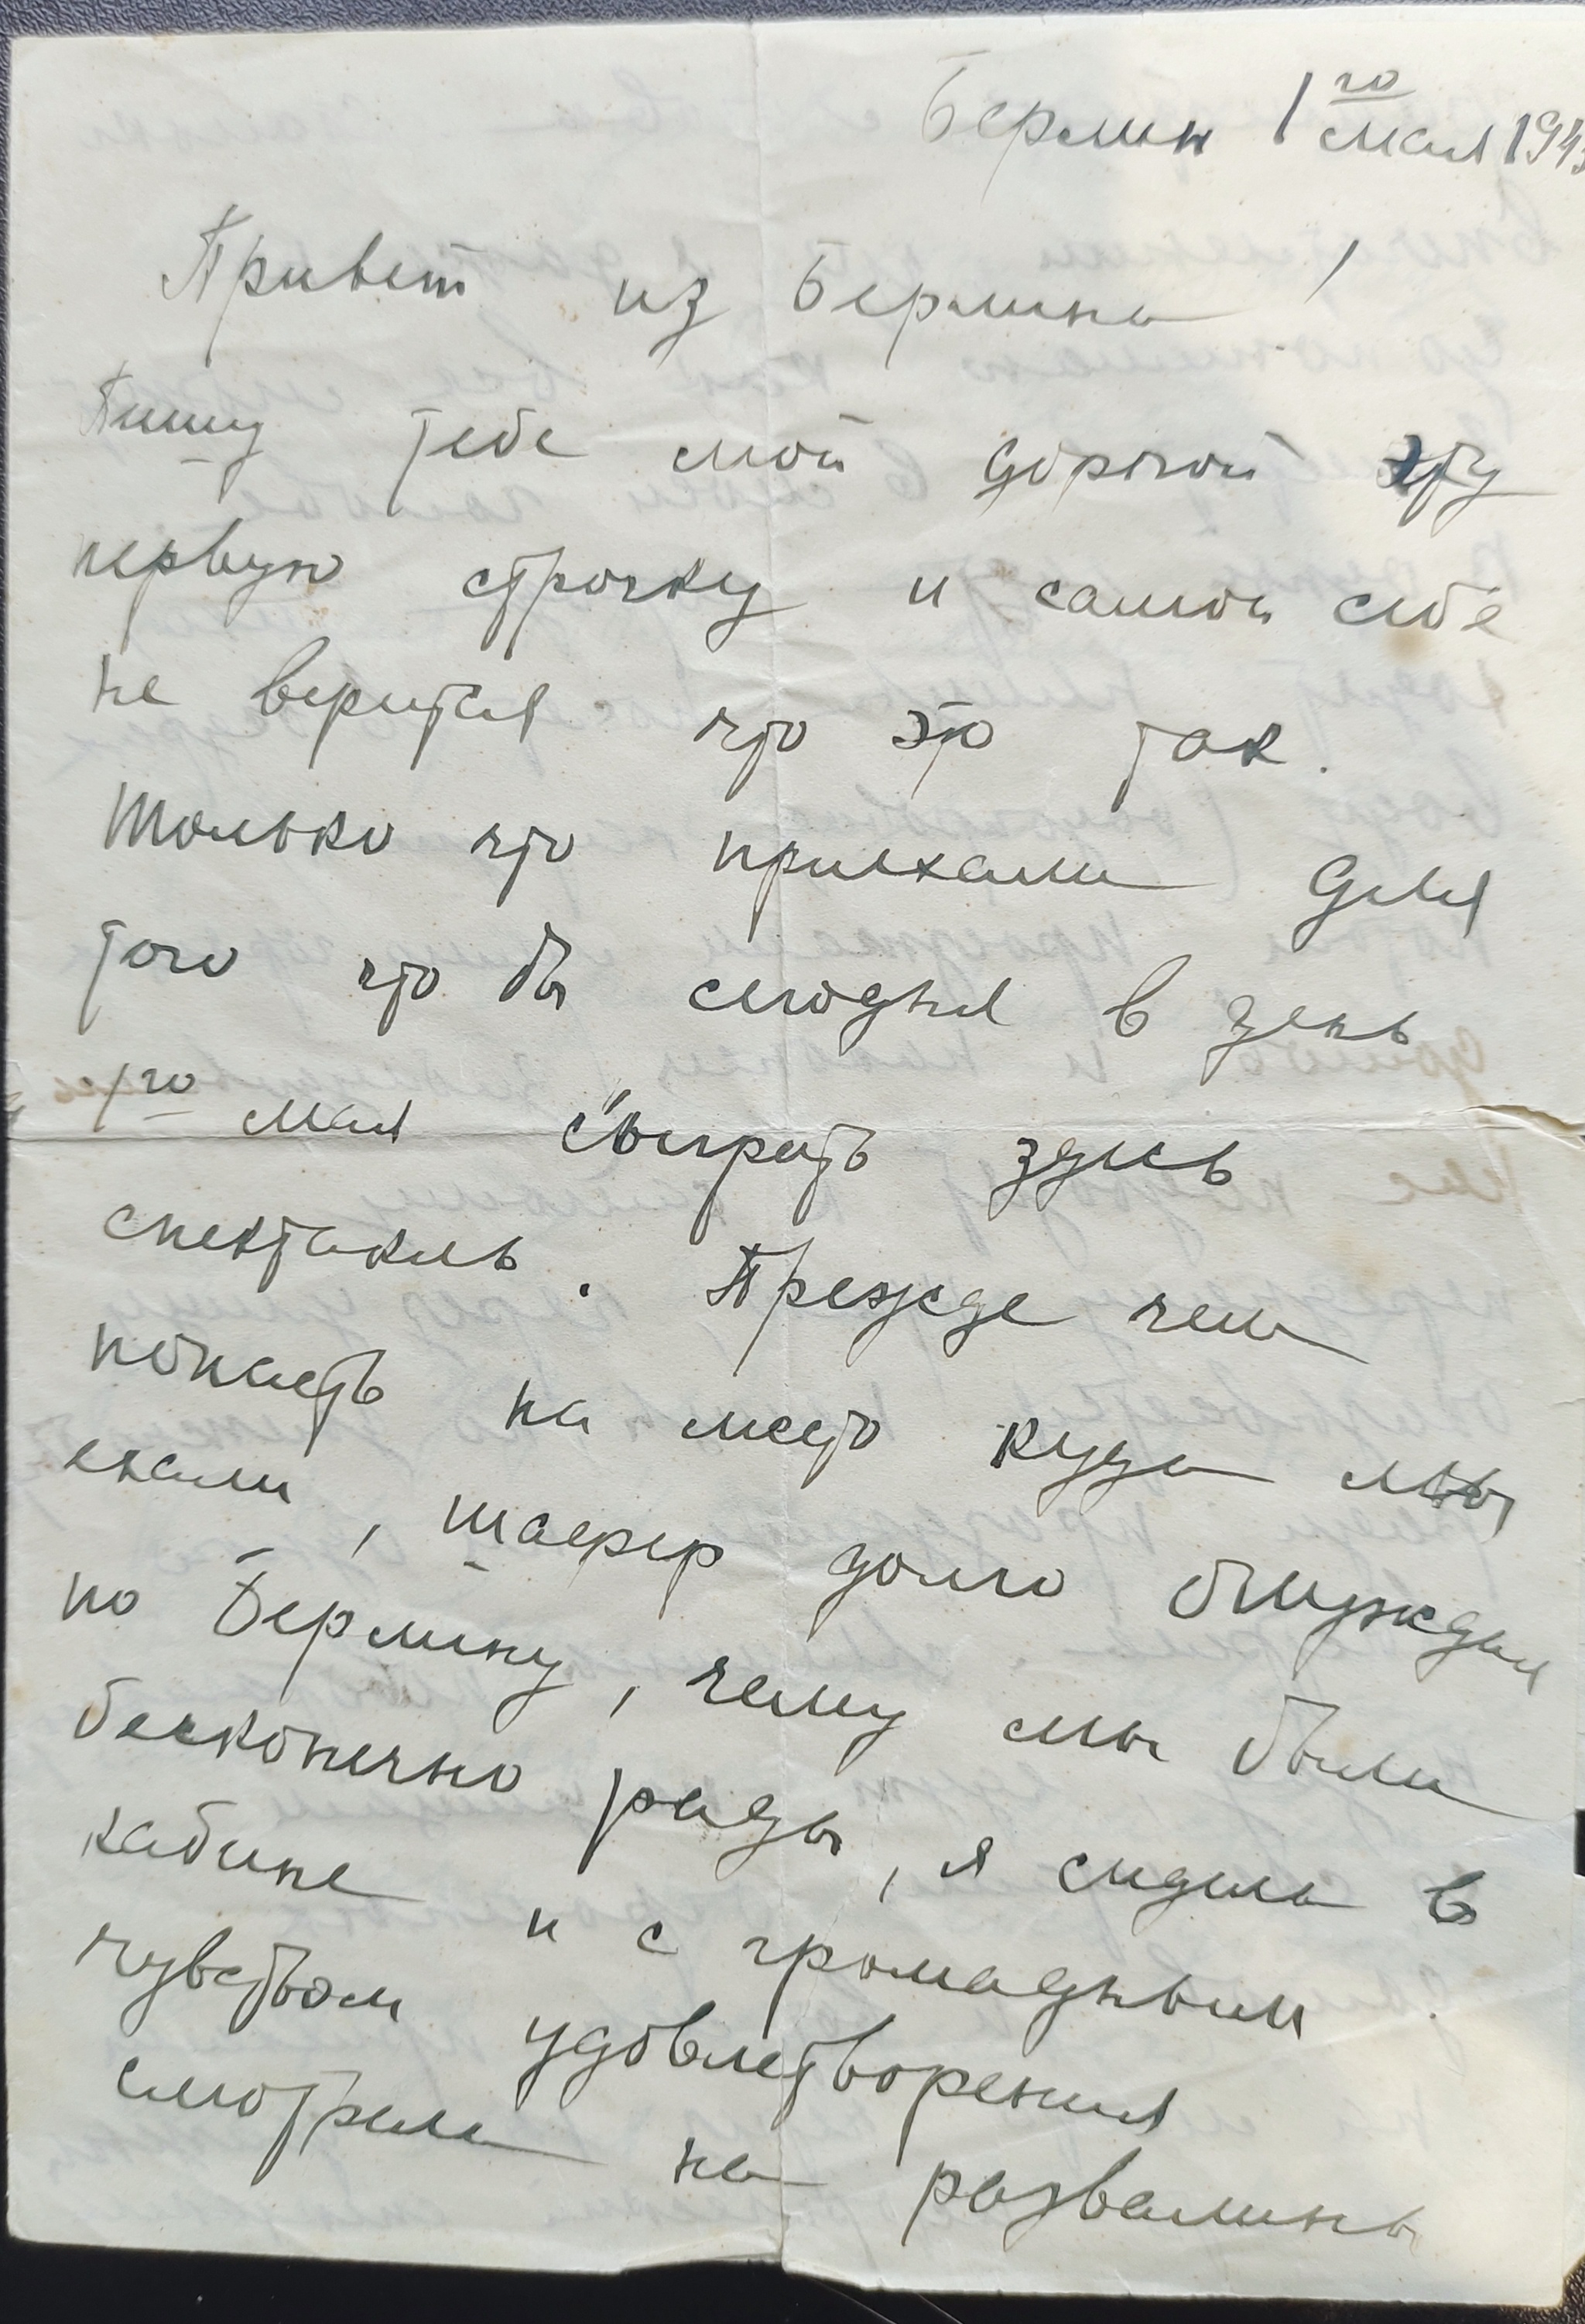 Берлин 1го мая 1945
Привет из Берлина!
Пишу тебе мой дорогой эту
первую строчку и самой себе
не верится что это так.
Только что приехали для
того что бы сегодня в день
1го мая сыграть здесь
спектакль. Прежде чем
попасть на место куда мы
ехали, шофер долго блуждал
по Берлину, чему мы были
бесконечно рады, я сидела в
кабине и с громадным
чувством удовлетворения
смотрела на развалины